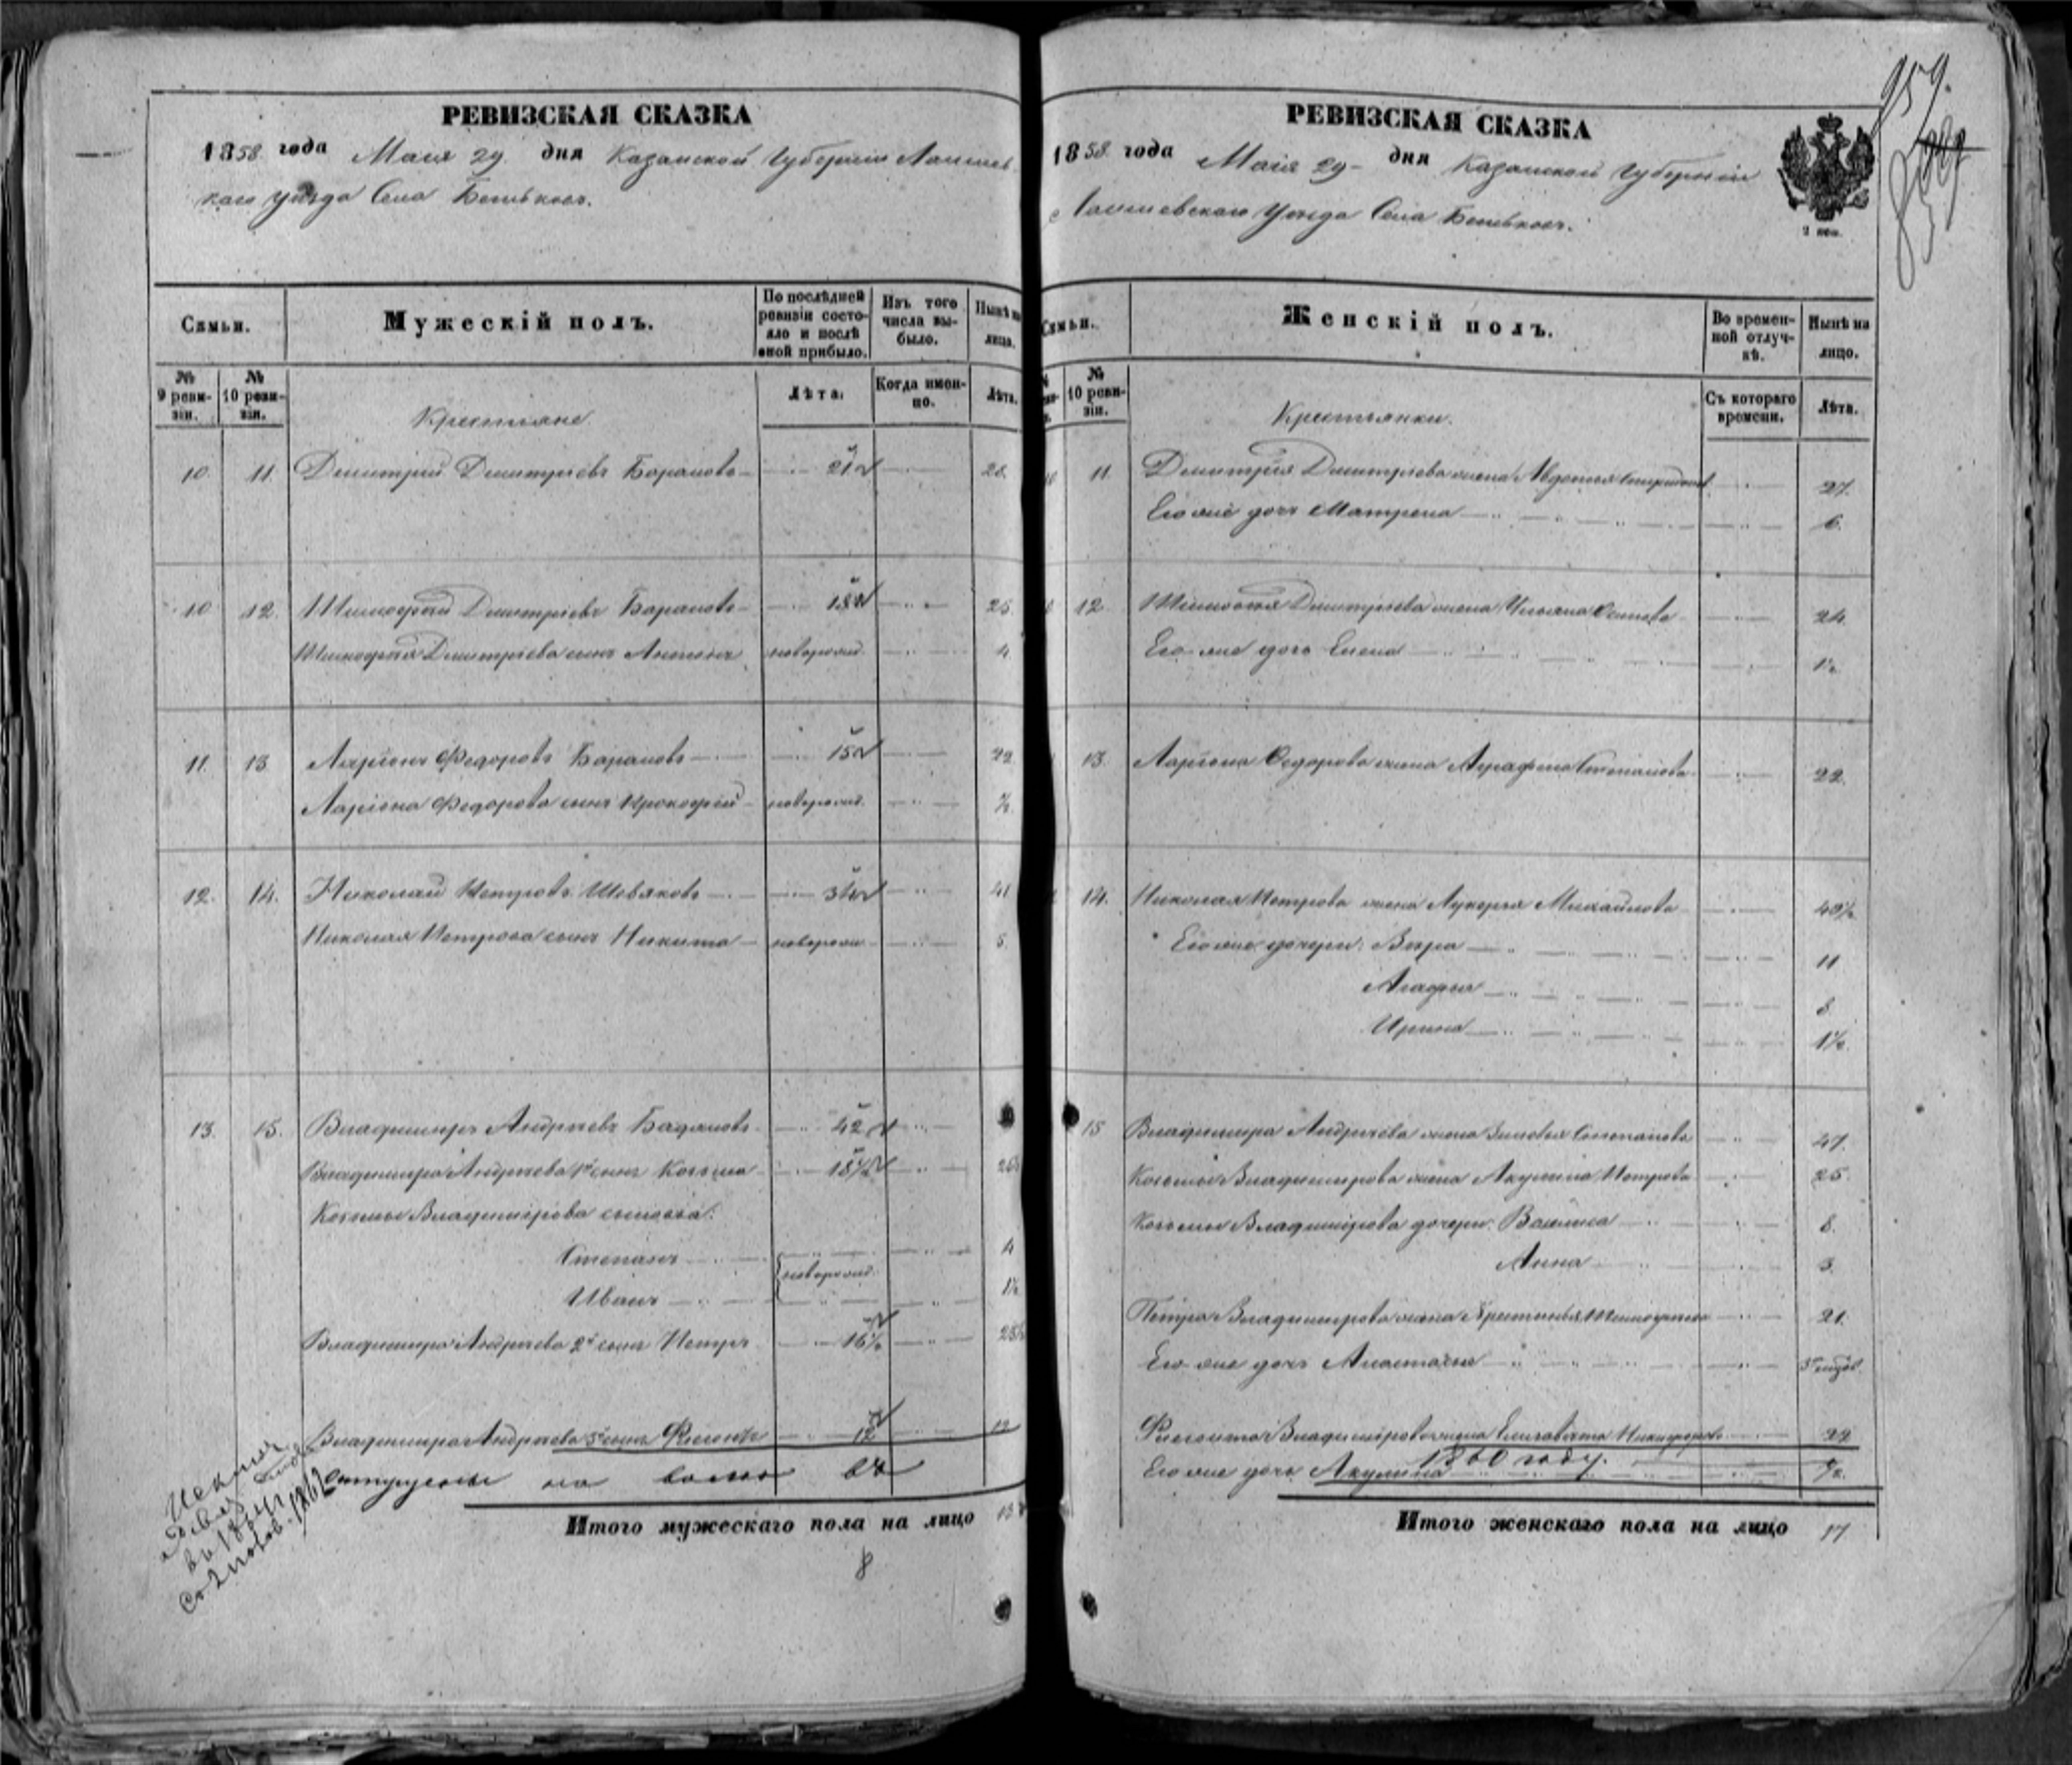 РЕВИЗСКАЯ СКАЗКА
1858 года Маія 29 дня Казанской Губерніи Лаишев
каго уѣзда Села
Сѣмьи.
Мужескій полъ.
По послѣдней ревизіи состояло и послѣ оной прибыло.
Изъ того числа выбыло.
Нынѣ на лицо.
№ 9 ревизіи.
№ 10 ревизіи.
Крестьяне
Лѣта.
Когда именно.
Лѣта.
10. 11. Дмитрій Дмитріевъ Барановъ 21 28.
10 12. Тимофѣй Дмитріевъ Барановъ 18 25.
Тимофѣя Дмитріева сынъ новорожд. 4
11. 13 Ларіонъ Федоровъ Барановъ 15 22
Ларіона Федорова сынъ Прокофій новорожд. ½
12. 14. Николай Петровъ Шевяковъ 34 41
Николая Петрова сынъ Никита новорожд. 5.
13. 15. Владимиръ Андреевъ 42
Владимира Андреева 1й сынъ Козьма 18½
Козьмы Владимірова сыновья:
Степанъ 4
новорожд.
Иванъ 1½
Владимира Андреева 2й сынъ Петръ 16½
Владимира Андреева 3й сынъ 12 19
отпущены на волю въ
Итого мужескаго пола на лицо
8
РЕВИЗСКАЯ СКАЗКА
1858. года Маія 29 дня Казанской Губерніи
Лаишевскаго Уѣзда Села
2 коп.
959.
Сѣмьи.
Женскій полъ.
Во временной отлучкѣ.
Нынѣ на лицо.
№ 10 ревизіи.
Крестьянки.
Съ котораго времени.
Лѣта.
11. Дмитрія Дмитріева жена Авдотья 27.
Его же дочь Матрена 6.
12. Тимофѣя Дмитріева жена Ульяна Осипова 24.
Его же дочь Елена 1½
13. Ларіона Федорова жена Аграфена Степанова 22.
14. Николая Петрова жена Лукерья Михайлова 40½
Его же дочери: Вѣра 11
Агафья 8
Ирина 1½.
15 Владимира Андреева жена Зиновья Степанова 47.
Козьмы Владимирова жена Акулина Петрова 25.
Козьмы Владимірова дочери: 8.
Анна 3.
Петра Владимирова жена 21.
Его же дочь Анастасія
Владимірова жена Елисавета Никифорова 22
1860 году.
Его же дочь Акулина ½
Итого женскаго пола на лицо 17